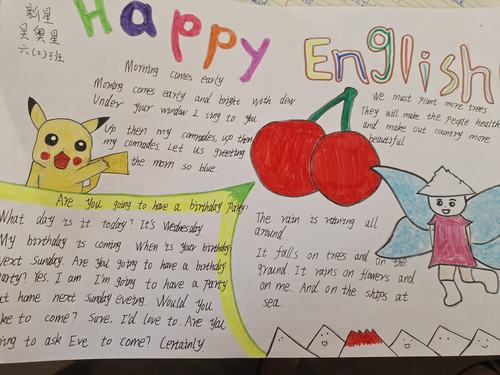 新星
吴奥星
六(2)班
Happy
English
Morning comes early
Morning comes early and bright with dew.
Under your window I sing to you.
Up then my comrades, up then
my comrades. Let us greeting
the morn so blue.
We must plant more trees
They will make the people health
and make out country more
beautiful
Are you going to have a birthday Party?
What day is it today? It's Wednesday
My birthday is coming. When is your birthday
Next Sunday. Are you going to have a birthday
party? Yes. I am. I'm going to have a Party
at home next Sunday eveing. Would you
ke to come? Sure. I'd love to. Are you
ing to ask Eve to come? Certainly.
The rain is raining all
around.
It falls on trees and on the
ground. It rains on flowers and
on me. And on the ships at
sea.